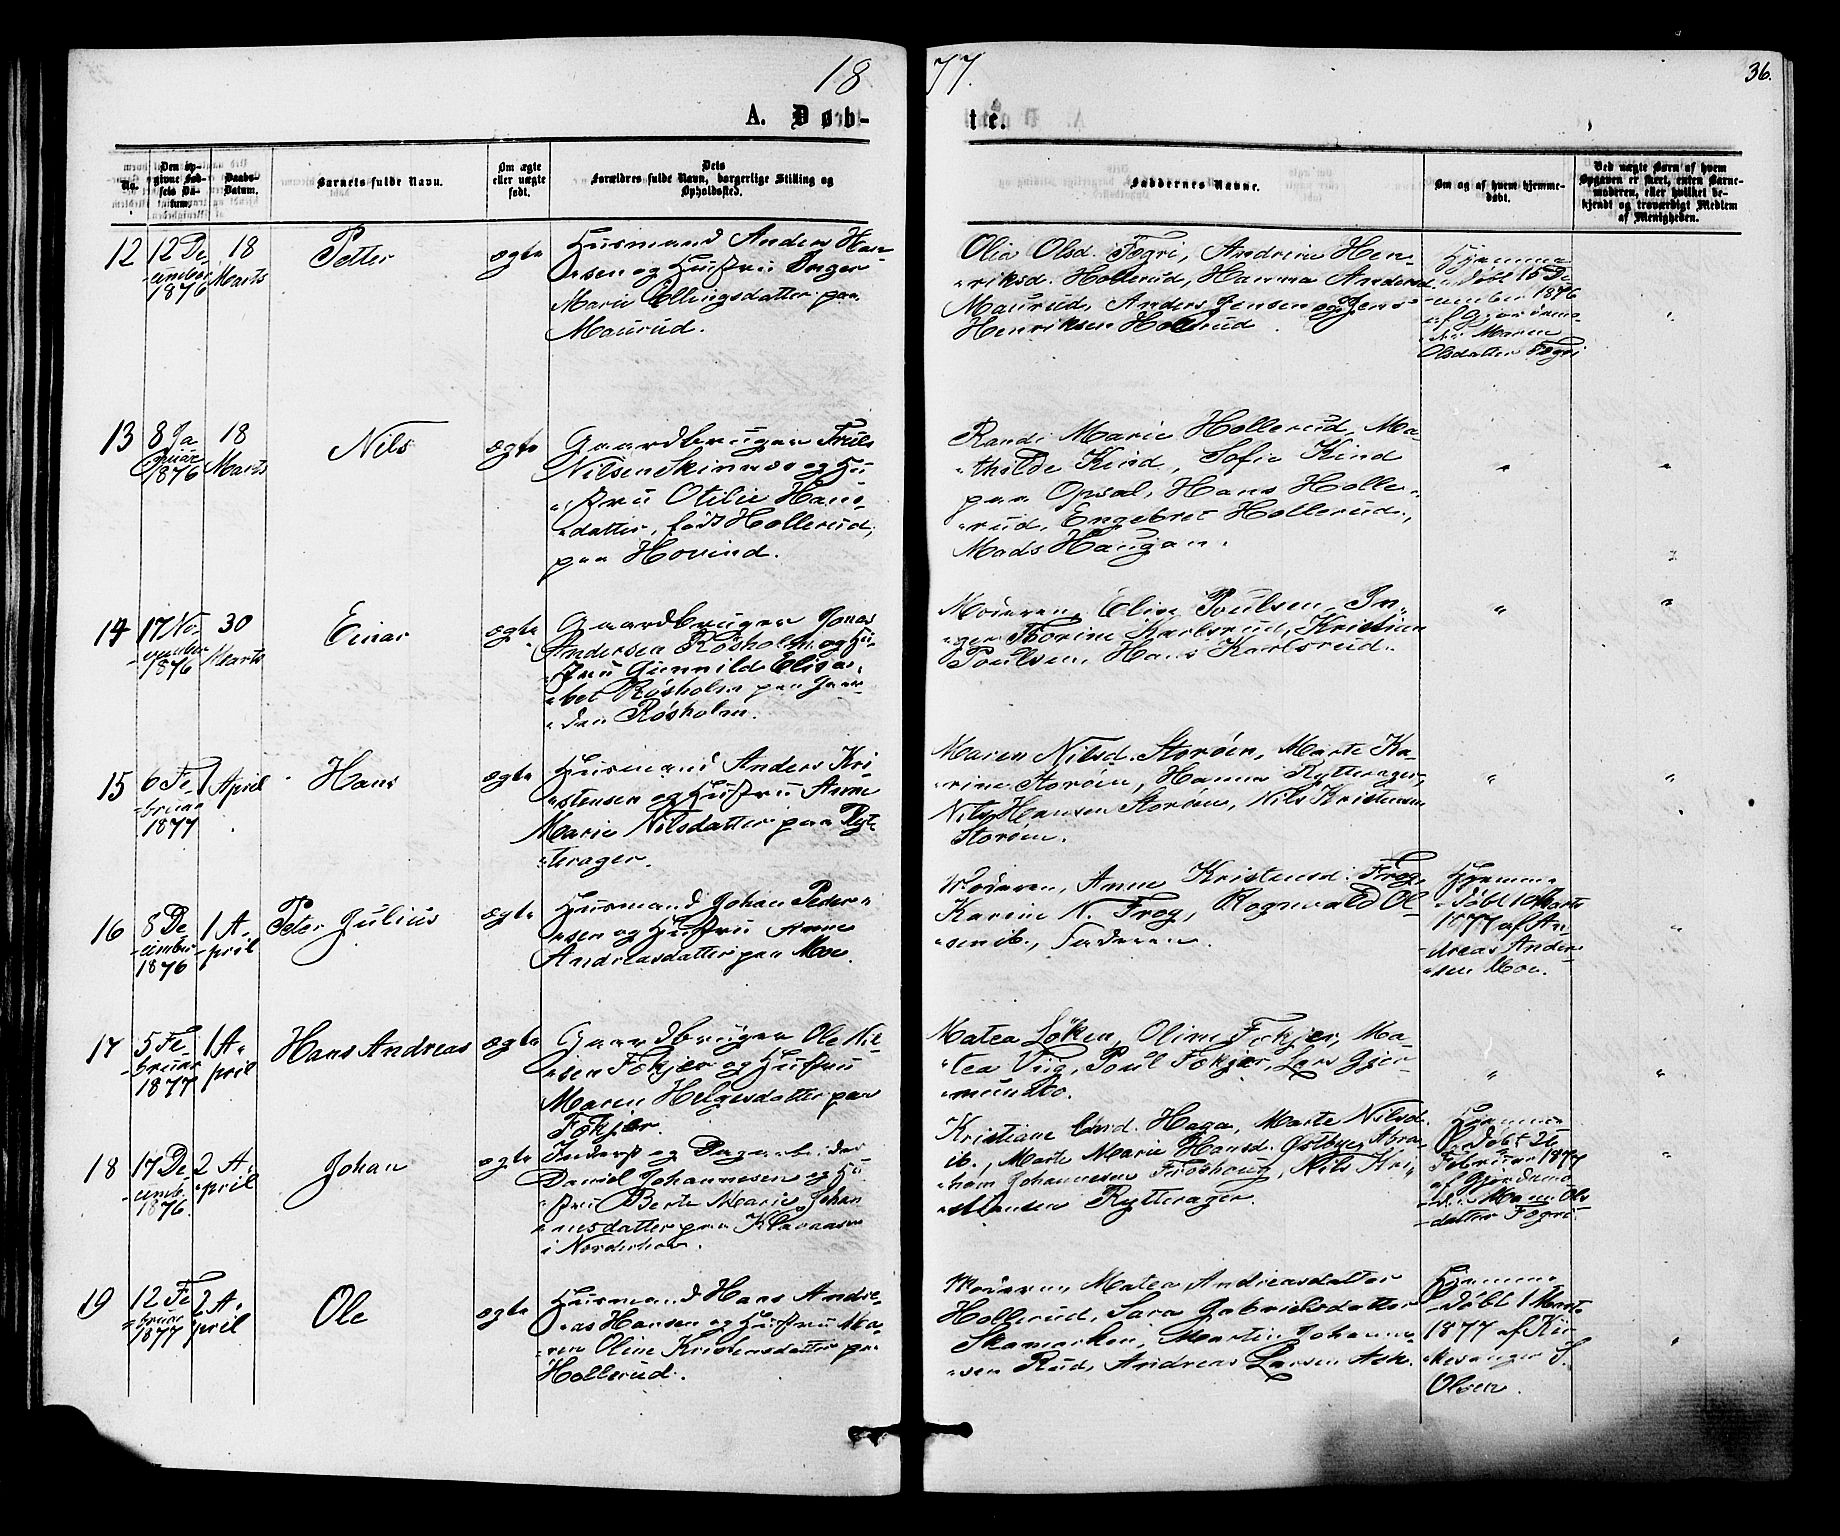 1877.
36.
A. Døbte.
No.
Den opgivne Fødsels Datum.
Daabs-Datum.
Barnets fulde Navn.
Om ægte eller uægte født.
Dets Forældres fulde Navn, borgerlige Stilling og Opholdssted.
Faddernes Navne.
Om og af hvem hjemmedøbt.
Ved uægte Børn af hvem Opgaven er skeet, enten Barnemoderen, eller hvilket bekjendt og troværdigt Medlem af Menigheden.
12
12 De-
-cember
1876
18
Marts
Petter
ægte
Husmand Anders Han-
-sen og Hustru Inger
Marie Ellingsdatter paa
Maurud.
Olia Olsd. Fogri, Andrine Hen-
-riksd. Hollerud, Hanna Andersd
Maurud, Anders Jensen og Jens
Henriksen Hollerud.
Hjemme
-døbt 15 De
-cember 1876
af Gjordemo-
-der Maren
Olsdatter Fogri
13
8 Ja
nuar
1876
18
Marts
Nils
ægte
Gaardbruger Truls
Nilsen Skinnes og Hu
-stru Otilie Hans-
-datter, født Hollerud,
paa Hovind.
Randi Marie Hollerud, Ma-
-thilde Kind, Sofie Kind
paa Opsal, Hans Holle-
-rud, Engebret Hollerud,
Mads Haugan.
14
17 No-
-vember
1876
30
Marts
Einar
ægte
Gaardbruger Jonas
Andersen Røsholm og Hu-
-stru Gunnild Elisa-
-bet Røsholm paa Gaar-
-den Røsholm.
Moderen, Eline Poulsen, In-
-ger Thorine Karlsrud, Kristian
Poulsen, Hans Karlsrud.
15
6 Fe-
-bruar
1877
1 April
Hans
ægte
Husmand Anders Kri-
-stensen og Hustru Anne
Marie Nilsdatter paa Ryt-
-terager.
Maren Nilsd. Storøen, Marte Ka-
-rine Storøen, Hanna Rytterager,
Nils Hansen Storøen, Nils Kristensen
Storøen.
16
8 De-
-cember
1876
1 A-
-pril
Peter Julius
ægte
Husmand Johan Peder-
-sen og Hustru Anne
Andreasdatter paa Moe.
Moderen, Anne Kristensd. Frog,
Karine N. Frog, Rognvald Ol-
-sen ib., Faderen.
Hjemme
-døbt 10 Marts
1877 af An-
-dreas Ander-
-sen Moe.
17
5 Fe-
-bruar
1877
1 A-
pril
Hans Andreas
ægte
Gaardbruger Ole Nil-
-sen Fokjer og Hustru
Maren Helgesdatter paa
Fokjer.
Matea Løken, Oline Fokjer, Ma-
-tea Viig, Poul Fokjer, Lars Gjer-
-mundbo.
18
17 De-
-cemb.
1876
2 A-
-pril
Johan
ægte
Inderst og Dagarbeider
Daniel Johannesen og Hu-
-stru Berte Marie Johan
-nesdatter paa
i Norderhov.
Kristiane Haga, Marte Nilsd.
ib., Marte Marie Hansd. Østbye, Abra-
-ham Johannesen Froshoug, Nils Kri-
-stiansen Rytterager.
Hjemme
-døbt 26
Februar 1877
af Gjordemo-
-der Maren Ols
-datter Fogri.
19
12 Fe-
-bruar
1877
2 A-
pril
Ole
ægte
Husmand Hans Andre-
-as Hansen og Hustru Ma-
-ren Oline Kristensdatter paa
Hollerud.
Moderen, Matea Andreasdatter
Hollerud, Sara Gabrielsdatter
Skamarken, Martin Johanne-
-sen Rud, Andreas Larsen Ask.
Hjemme
-døbt 1 Marts
1877 af Kir-
-kesanger S.
Olsen.